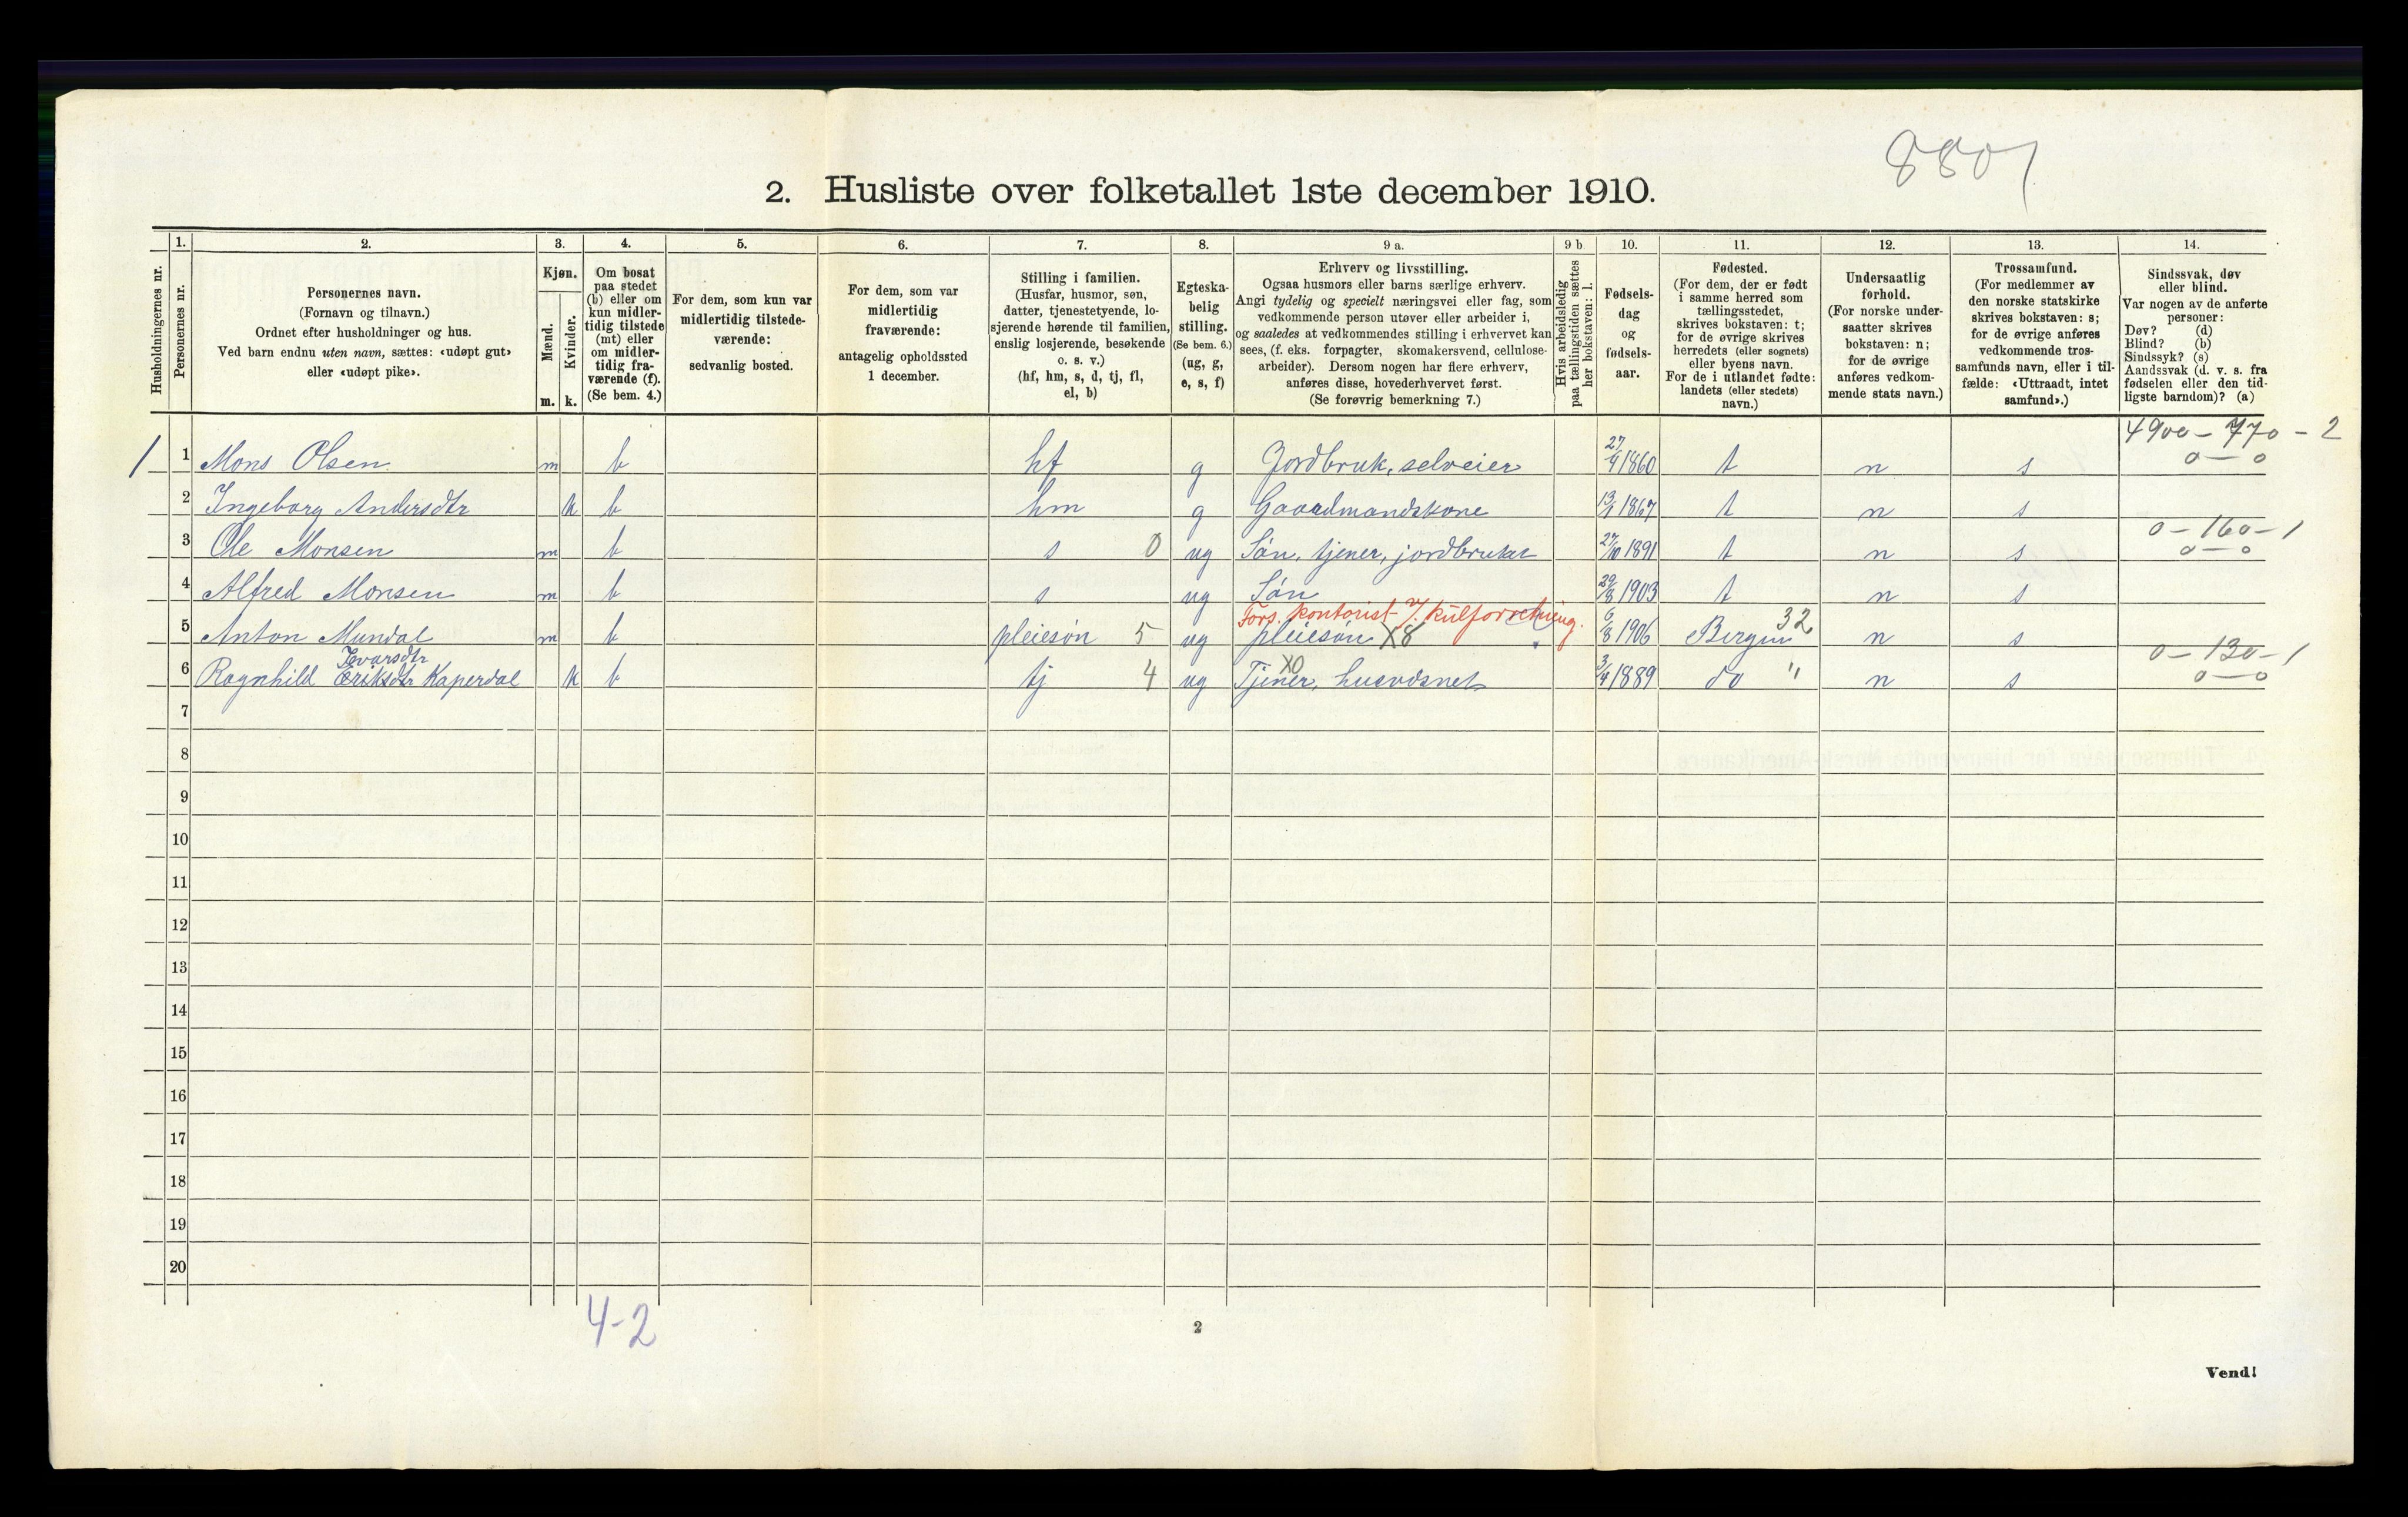 8801
2. Husliste over folketallet 1ste december 1910.
1. 2. 3. 4. 5. 6. 7. 8. 9 a. 9 b 10. 11. 12. 13. 14.
Husholdningernes nr.
Personernes nr.
Personernes navn.
(Fornavn og tilnavn.)
Ordnet efter husholdninger og hus.
Ved barn endnu uten navn, sættes: «udøpt gut»
eller «udøpt pike».
Kjøn.
Mænd.
Kvinder.
m. k.
Om bosat
paa stedet
(b) eller om
kun midler-
tidig tilstede
(mt) eller
om midler-
tidig fra-
værende (f).
(Se bem. 4.)
For dem, som kun var
midlertidig tilstede-
værende:
sedvanlig bosted.
For dem, som var
midlertidig
fraværende:
antagelig opholdssted
1 december.
Stilling i familien.
(Husfar, husmor, søn,
datter, tjenestetyende, lo-
sjerende hørende til familien,
enslig losjerende, besøkende
o. s. v.)
(hf, hm, s, d, tj, fl,
el, b)
Egteska-
belig
stilling.
(Se bem. 6.)
(ug, g,
e, s, f)
Erhverv og livsstilling.
Ogsaa husmors eller barns særlige erhverv.
Angi tydelig og specielt næringsvei eller fag, som
vedkommende person utøver eller arbeider i,
og saaledes at vedkommendes stilling i erhvervet kan
sees, (f. eks. forpagter, skomakersvend, cellulose-
arbeider). Dersom nogen har flere erhverv,
anføres disse, hovederhvervet først.
(Se forøvrig bemerkning 7.)
Hvis arbeidsledig
paa tællingstiden sættes
her bokstaven: l.
Fødsels-
dag
og
fødsels-
aar.
Fødested.
(For dem, der er født
i samme herred som
tællingsstedet,
skrives bokstaven: t;
for de øvrige skrives
herredets (eller sognets)
eller byens navn.
For de i utlandet fødte:
landets (eller stedets)
navn.)
Undersaatlig
forhold.
(For norske under-
saatter skrives
bokstaven: n;
for de øvrige
anføres vedkom-
mende stats navn.)
Trossamfund.
(For medlemmer av
den norske statskirke
skrives bokstaven: s;
for de øvrige anføres
vedkommende tros-
samfunds navn, eller i til-
fælde: «Uttraadt, intet
samfund».)
Sindssvak, døv
eller blind.
Var nogen av de anførte
personer:
Døv? (d)
Blind? (b)
Sindssyk? (s)
Aandssvak (d. v. s. fra
fødselen eller den tid-
ligste barndom)? (a)
4900 – 770 – 2
1 1 Mons Olsen m b hf g Jordbruk, selveier 27/4 1860 t n s 0 – 0
2 Ingeborg Andersdtr k b hm g Gaardmandskone 13/1 1867 t n s
0 – 160 – 1
3 Ole Monsen m b s 0 ug Søn, tjener, jordbruket 27/10 1891 t n s 0 – 0
4 Alfred Monsen m b s ug Søn 29/8 1903 t n s
Fors. kontorist v/. kulforretning.
5 Anton Mundal m b pleiesøn 5 ug pleiesøn X8 6/8 1906 Bergen 32 n s
Ivarsdtr X0 0 – 130 – 1
6 Ragnhild Eriksdtr Kaperdal k b tj 4 ug Tjener, husvæsnet 3/4 1889 do " n s 0 – 0
7
8
9
10
11
12
13
14
15
16
17
18
19
20
4-2
2
Vend!